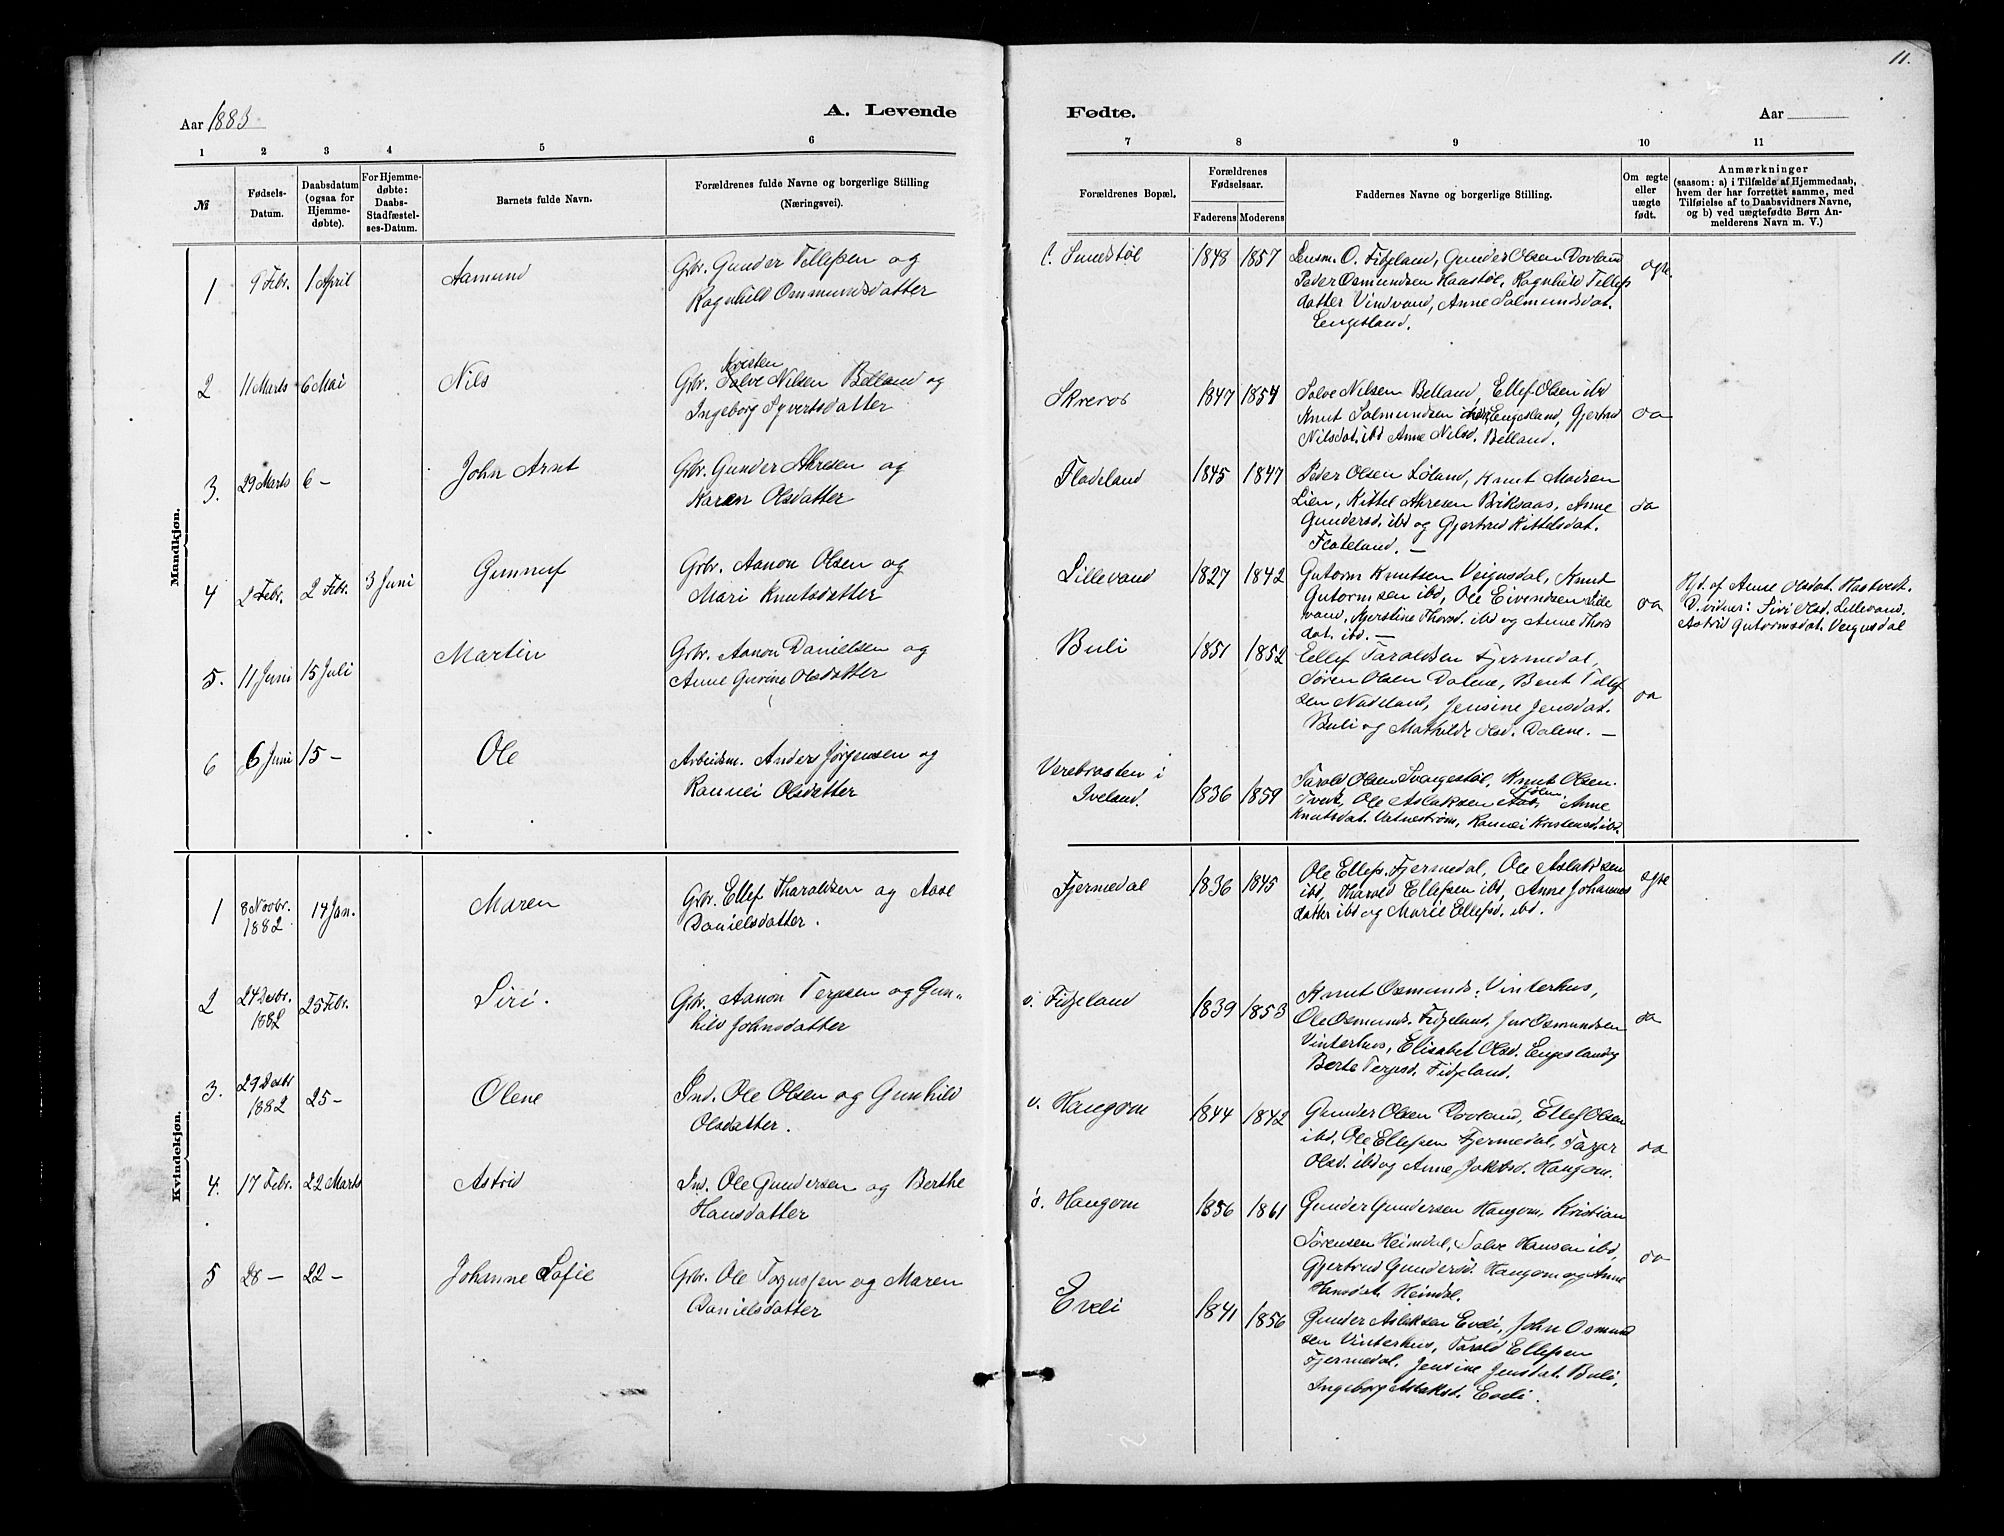 11.
Aar 1883
A. Levende
Fødte.
Aar
1 2 3 4 5 6 7 8 9 10 11
№
Fødsels-
Datum.
Daabsdatum
(ogsaa for
Hjemme-
døbte).
For Hjemme-
døbte:
Daabs-
Stadfæstel-
ses-Datum.
Barnets fulde Navn.
Forældrenes fulde Navne og borgerlige Stilling
(Næringsvei).
Forældrenes Bopæl.
Forældrenes
Fødselsaar.
Faderens Moderens
Faddernes Navne og borgerlige Stilling.
Om ægte
eller
uægte
født.
Anmærkninger
(saasom: a) i Tilfælde af Hjemmedaab,
hvem der har forrettet samme, med
Tilføielse af to Daabsvidners Navne,
og b) ved uægtefødte Børn An-
melderens Navn m. V.)
Mandkjøn.
1 9 Febr. 1 April Aamund
Grb. Gunder Tellefsen og
Ragnhild Ommundsdatter
Sundstøl 1848 1857
Lensm. O. Fidjeland, Gunder Olsen Dovland
Peder Osmundsen Haastøl, Ragnhild Tellefs
datter Vindvand, Anne Salmundsdat.
Engesland.
ægte
2 11 Marts 6 Mai Nils
Kristen
Grb. Salve Nilsen Belland og
Ingeborg Syvertsdatter
Skreros 1847 1854
Salve Nilsen Belland, Ellef Olsen ibd
Knut Salmundsen Engesland, Gjertrud
Nilsdat. ibd Anne Nilsd. Belland.
do
3. 29 Marts 6 - John Arnt
Grb. Gunder Akresen og
Karen Olsdatter
Fladeland 1845 1847
Peder Olsen Løland, Knut Madsen
Lien, Kittel Akresen Birksaas, Anne
Gundersd. ibd og Gjertrud Kittelsdat.
Flateland. -
do
4 2 Febr. 2 Febr. 3 Juni Gunnuf
Grb. Aanon Olsen og
Mari Knutsdatter
Lillevand 1827 1842
Gutorm Knutsen Veigusdal, Knut
Gutormsen ibd, Ole Eivendsen Lille
vand, Kjerstine Thorsd. ibd og Anne Thors
dat. ibd. -
do
Hjd. af Anne Olsdat. Hastvedt.
D. vidner: Siri Olsd. Lillevand.
Astrid Gutormsdat. Veigusdal
5. 11 Juni 15 Juli Martin
Grb. Aanon Danielsen og
Anne Gurine Olsdatter
Buli 1851 1852
Ellef Taraldsen Fjermedal,
Søren Olsen Dalene, Bent Tellef
sen Nadeland, Jensine Jensdat.
Buli og Mathilde Olsd. Dalene. -
do
6 6 Juni 15 - Ole
Arbeidsm. Anders Jørgensen og
Rannei Olsdatter
Verebrosten i
Iveland. 1836 1859
Tarald Olsen Svaigestøl, Knut Olsen
Tveit, Ole Aslaksen Anne
Knutsdat. Vatnestrøm, Rannei Kristensd. ibd.
Kvindekjøn.
1 8 Novbr.
1882 14 Jan. Maren
Grb. Ellef Tharaldsen og Aase
Danielsdatter.
Fjermedal 1836 1845
Ole Ellefs. Fjermedal, Ole Aslaksen
ibd, Tharald Ellefsen ibd, Anne Johannes
datter ibd og Marie Ellefsd. ibd.
ægte
2 24 Desbr.
1882 25 Febr. Siri.
Grb. Aanon Terjesen og Gun-
hild Johnsdatter
Fidjeland 1839 1853
Knut Osmunds. Vinterhus,
Ole Osmunds. Fidjeland, Jens Osmundsen
Vinterhus, Elisabet Olsd. Engesland og
Berte Terjesd. Fidjeland.
do
3. 29 Desbr
1882 25 - Olene
Ind. Ole Olsen og Gunhild
Olsdatter.
v. Haugom 1844 1842
Gunder Olsen Dovland, Ellef Olsen
ibd, Ole Ellefsen Fjermedal, Targer
Olsd. ibd og Anne Jakobsd. Haugom.
do
4. 17 Febr. 22 Marts Astrid
Ind. Ole Gundersen og Berthe
Hansdatter
ø. Haugom 1856 1861
Gunder Gundersen Haugom, Kristian
Sørensen Heimdal, Salve Hansen ibd,
Gjertrud Gundersd. Haugom og Anne
Hansdat. Heimdal.
do
5 28 - 22 - Johanne Sofie
Grb. Ole Torjussen og Maren
Danielsdatter
Eveli 1841 1856
Gunder Aslaksen Eveli, John Osmund
sen Vinterhus, Tarald Ellefsen
Fjermedal, Jensine Jensdat. Buli,
Ingeborg Aslaksd. Eveli.